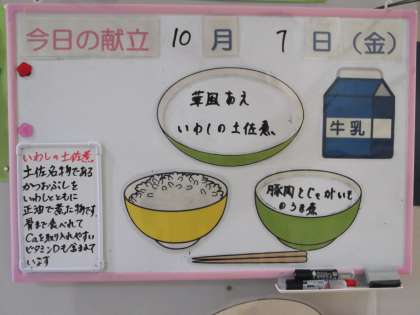 今日の献立 10月7日(金)
華風あえ
いわしの土佐煮
牛乳
豚肉とじゃがいも
のうま煮
いわしの土佐煮
土佐名物である
かつおぶしを
いわしとともに
正油で煮た物です
骨まで食べれて
Caを取り入れやすい
ビタミンDも含まれて
います